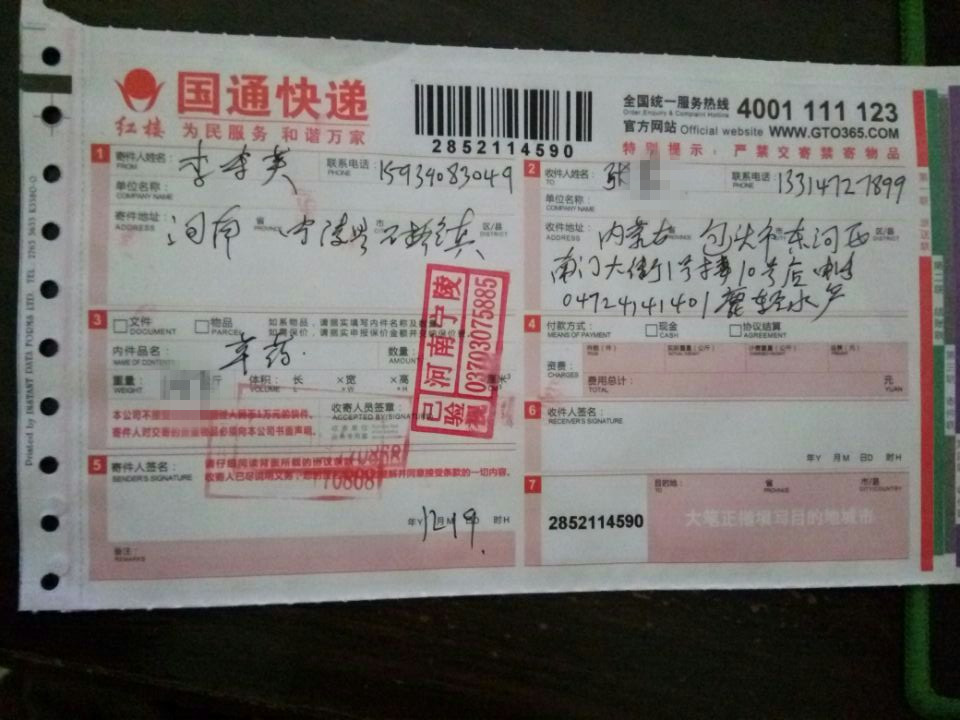 国通快递
红楼 为民服务 和谐万家
2852114590
全国统一服务热线 4001 111 123
Order,Enquiry & Complaint Hotline
官方网站 Official website WWW.GTO365.COM
特别提示：严禁交寄禁寄物品
1 寄件人姓名： 李 英 联系电话： 15939083049
FROM PHONE
单位名称：
COMPANY NAME
寄件地址： 河南 省 宁陵县 市 区/县
ADDRESS PROVINCE DISTRICT
2 收件人姓名： 张 联系电话： 13314727899
TO: PHONE
单位名称：
COMPANY NAME
收件地址： 内蒙古 包头市东河区
ADDRESS
南门大街1号楼10号店
04724141401 鹿 水产
已验视 河南宁陵 03703075885
3 文件 物品 如系物品，请据实填写内件名称及数量
DOCUMENT PARCEL
内件品名： 草药 数量：
NAME OF CONTENT AMOUNT
重量： 斤 体积： 长 ×宽 ×高 厘米³
WEIGHT VOLUME ×L ×W ×H
收寄人员签章：
ACCEPTED BY(SIGNATURE)
寄件人对交寄的 必须向本公司书面声明。
4 付款方式： 现金 协议结算
MEANS OF PAYMENT CASH AGREEMENT
资费：
CHARGES
费用总计： 元
TOTAL YUAN
5 寄件人签名： 请仔细阅读背面所载的协议条款
SENDER'S SIGNATURE 收寄人已尽说明义务， 理解并同意接受条款的一切内容。
年Y 12月19日D 时H
备注：
REMARKS
6 收件人签名：
RECEIVER'S SIGNATURE
年Y 月M 日D 时H
7 目的地： 省 市/县
TO PROVINCE CITY/COUNTRY
2852114590 大笔正楷填写目的地城市